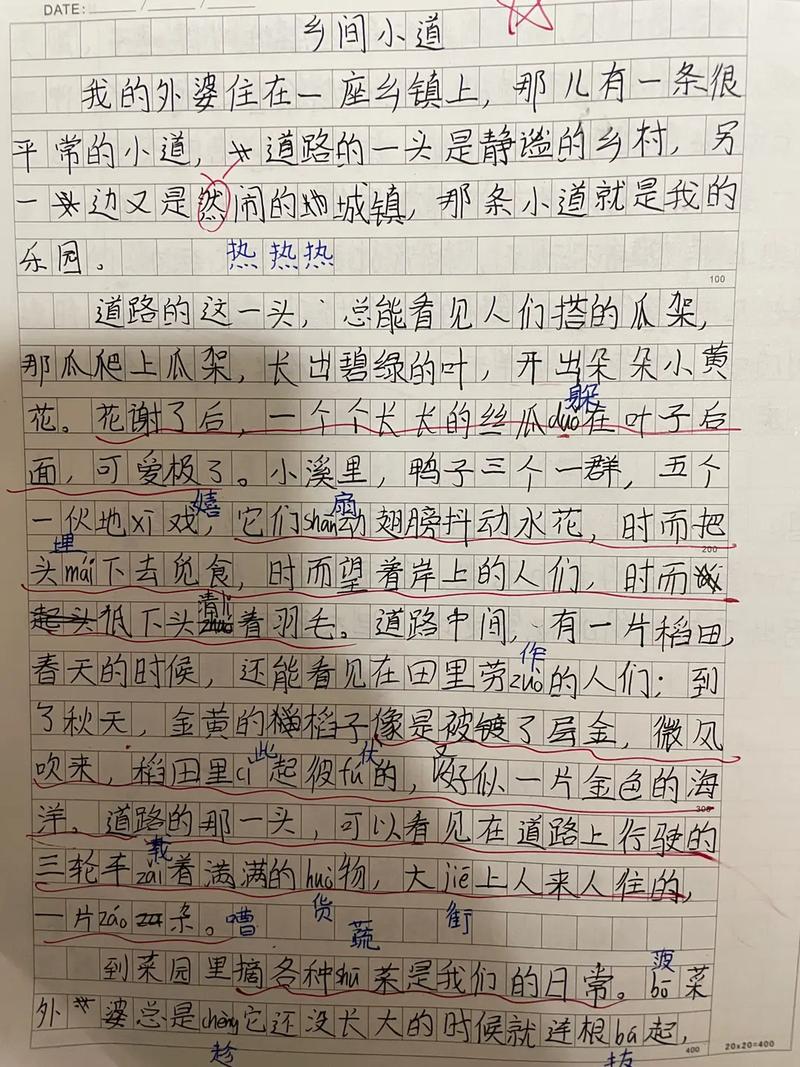 DATE:
乡间小道
我的外婆住在一座乡镇上，那儿有一条很
平常的小道，道路的一头是静谧的乡村，另
一边又是然闹的城镇，那条小道就是我的
乐园。
热热热
100
道路的这一头，总能看见人们搭的瓜架，
那瓜爬上瓜架，长出碧绿的叶，开出朵朵小黄
躲
花。花谢了后，一个个长长的丝瓜duǒ在叶子后
面，可爱极了。小溪里，鸭子三个一群，五个
嬉 扇
一伙地xī戏，它们shān动翅膀抖动水花，时而把
200
埋
头mái下去觅食，时而望着岸上的人们，时而
清儿
低下头着羽毛。道路中间，有一片稻田，
作
春天的时候，还能看见在田里劳zuò的人们；到
了秋天，金黄的稻子像是被镀了层金，微风
此 伏
吹来，稻田里cǐ起彼fú的，好似一片金色的海
300
洋。道路的那一头，可以看见在道路上行驶的
载
三轮车zài着满满的huò物，大jiē上人来人住的，
一片záo杂。嘈 货 蔬 街
到菜园里摘各种shū菜是我们的日常。bō菜
菠
外婆总是chèn它还没长大的时候就连根bá起，
400
20x20=400
趁 拔